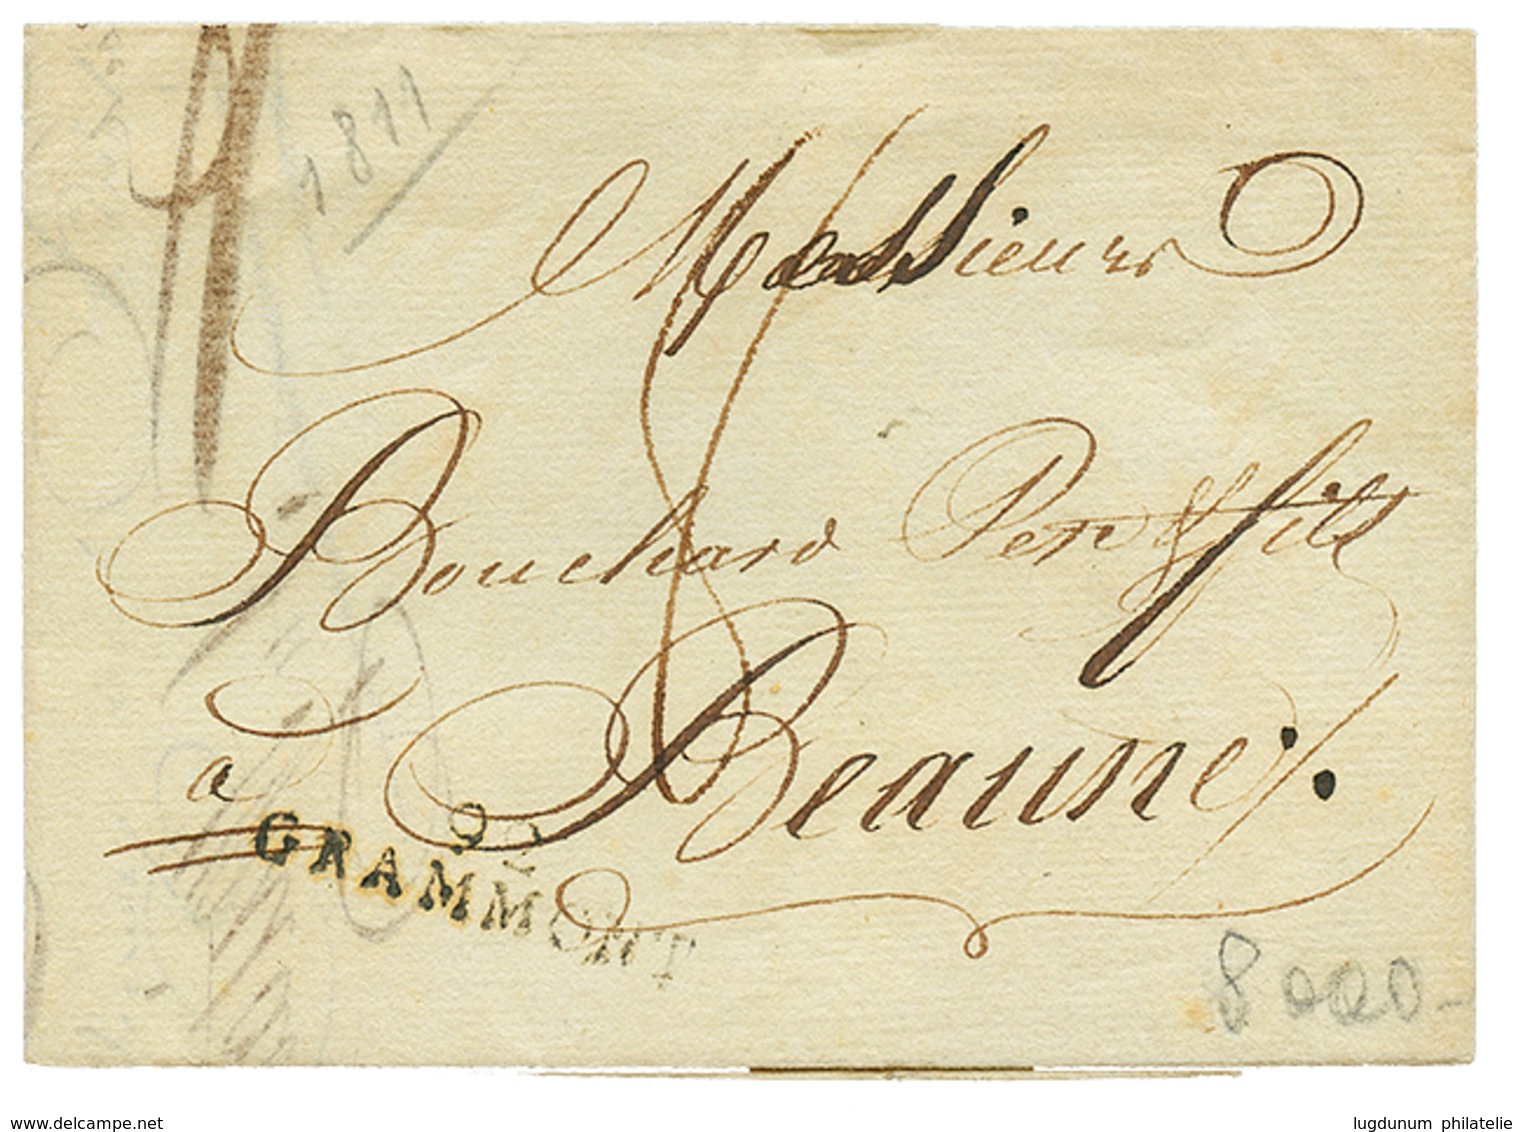 1811
Messieurs
Bouchard Pere & fils
a Beaune
92
GRAMMONT
8000-
www.delcampe.net
lugdunum philatelie